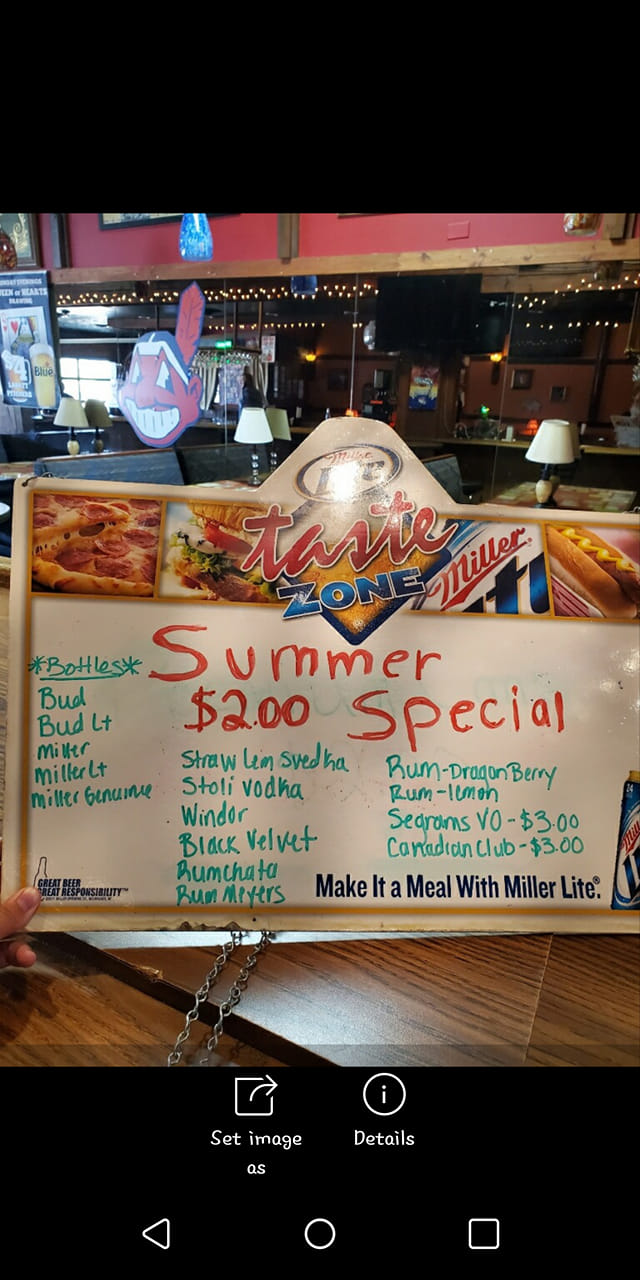 SUNDAY EVENINGS
QUEEN of HEARTS
DRAWING
$4
LABATT
PITCHERS
Blue
Miller
Lite
taste
ZONE
Miller
Summer
$2.00 Special
*Bottles*
Bud
Bud Lt
Miller
Miller Lt
Miller Genuine
Straw lem Svedka
Stoli Vodka
Windor
Black Velvet
Rumchata
Rum Meyers
Rum-DragonBerry
Rum-lemon
Segrams VO-$3.00
Canadian Club-$3.00
GREAT BEER
GREAT RESPONSIBILITY™
Make It a Meal With Miller Lite®.
24
Mill
Set image
as
Details